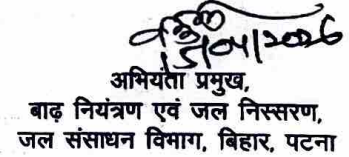 अभियंता प्रमुख,
बाढ़ नियंत्रण एवं जल निस्सरण,
जल संसाधन विभाग, बिहार, पटना